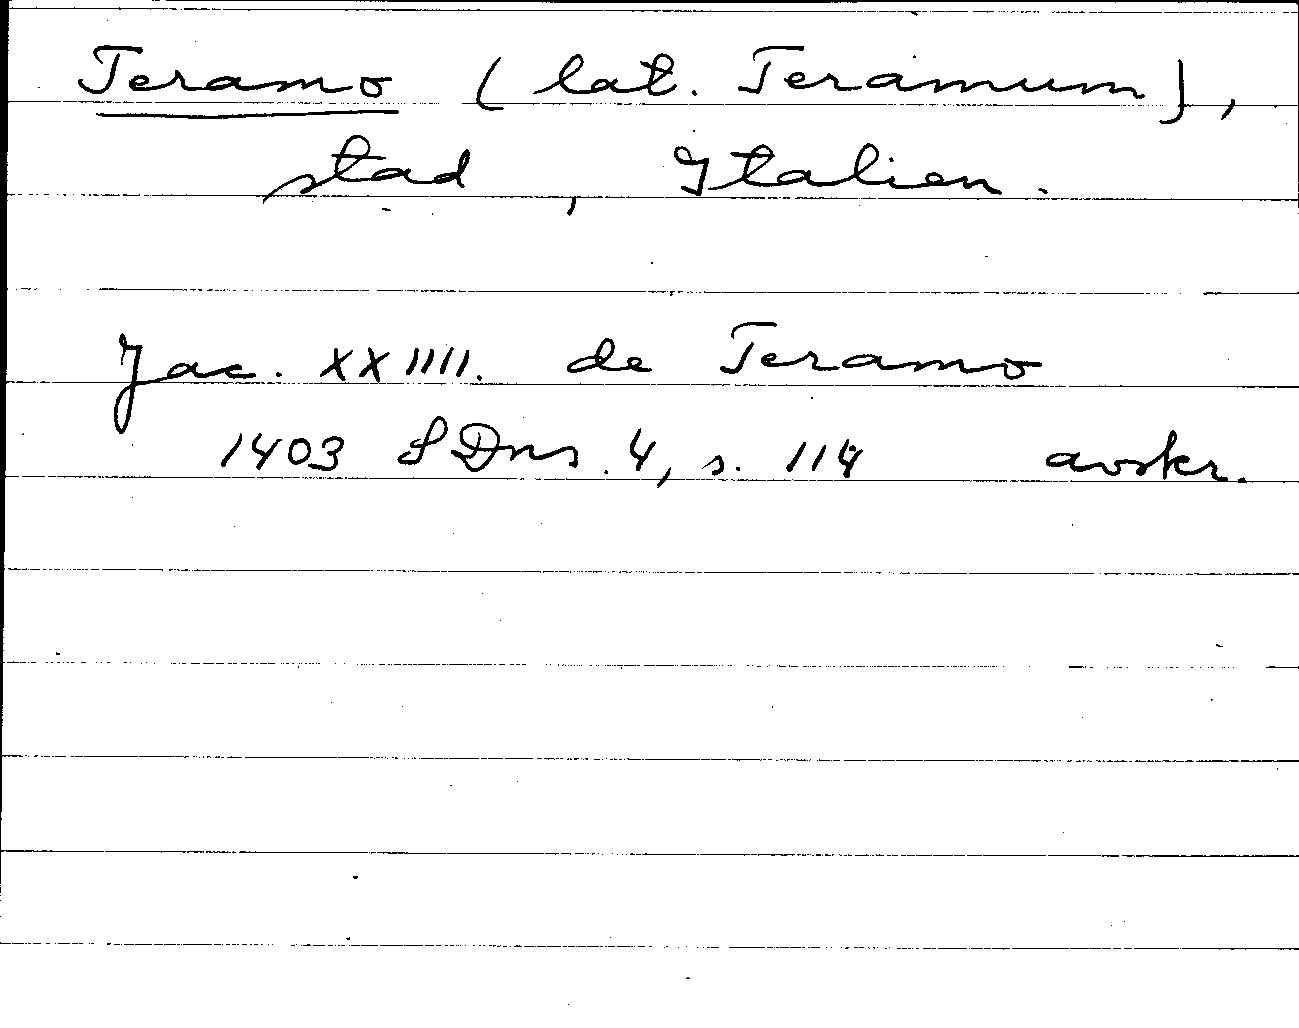 Teramo (lat. Teramum),
stad, Italien.
Jac. XXIIII. de Teramo
1403 SDns. 4, s. 114 avskr.